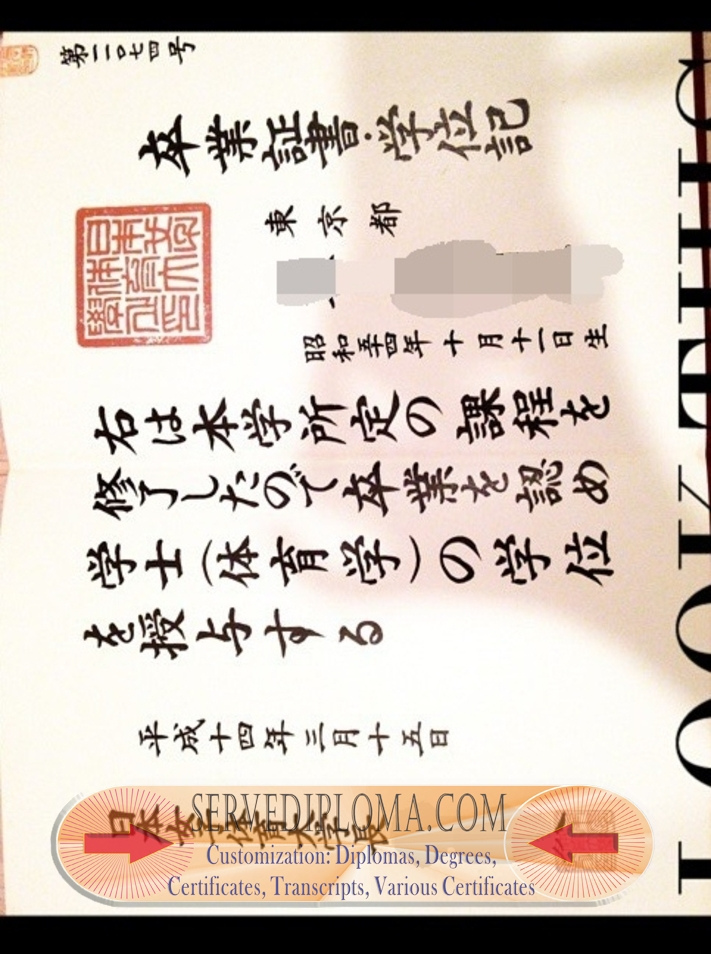 第一〇七四号
卒業証書·学位記
東京都
昭和五十四年十月十一日生
右は本学所定の課程を
修了したので卒業を認め
学士(体育学)の学位
を授与する
平成十四年三月十五日
日本女子体育大学長
SERVEDIPLOMA.COM
Customization: Diplomas, Degrees,
Certificates, Transcripts, Various Certificates
LOOK THIS